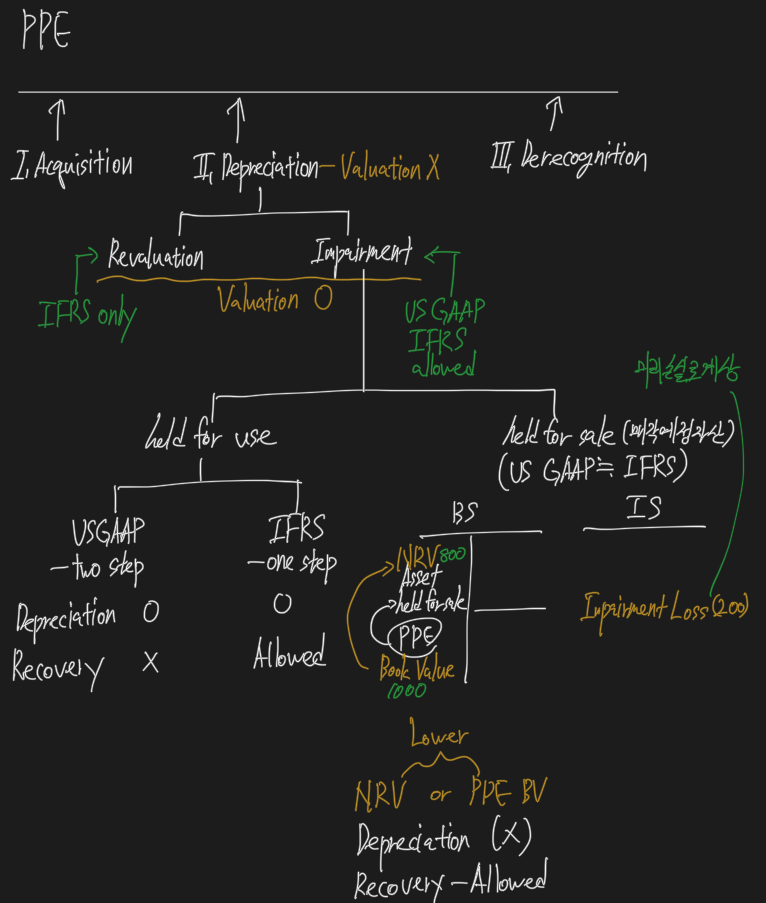 PPE
I, Acquisition
II, Depreciation - Valuation X
III, Derecognition
Revaluation
Impairment
IFRS only
Valuation O
US GAAP
IFRS
allowed
미리손실로계상
held for use
held for sale (매각예정자산)
(US GAAP ≒ IFRS)
USGAAP
- two step
IFRS
- one step
Depreciation O
O
Recovery X
Allowed
BS
IS
NRV 800
Asset
held for sale
PPE
Book Value
1000
Impairment Loss (200)
Lower
NRV or PPE BV
Depreciation (X)
Recovery - Allowed